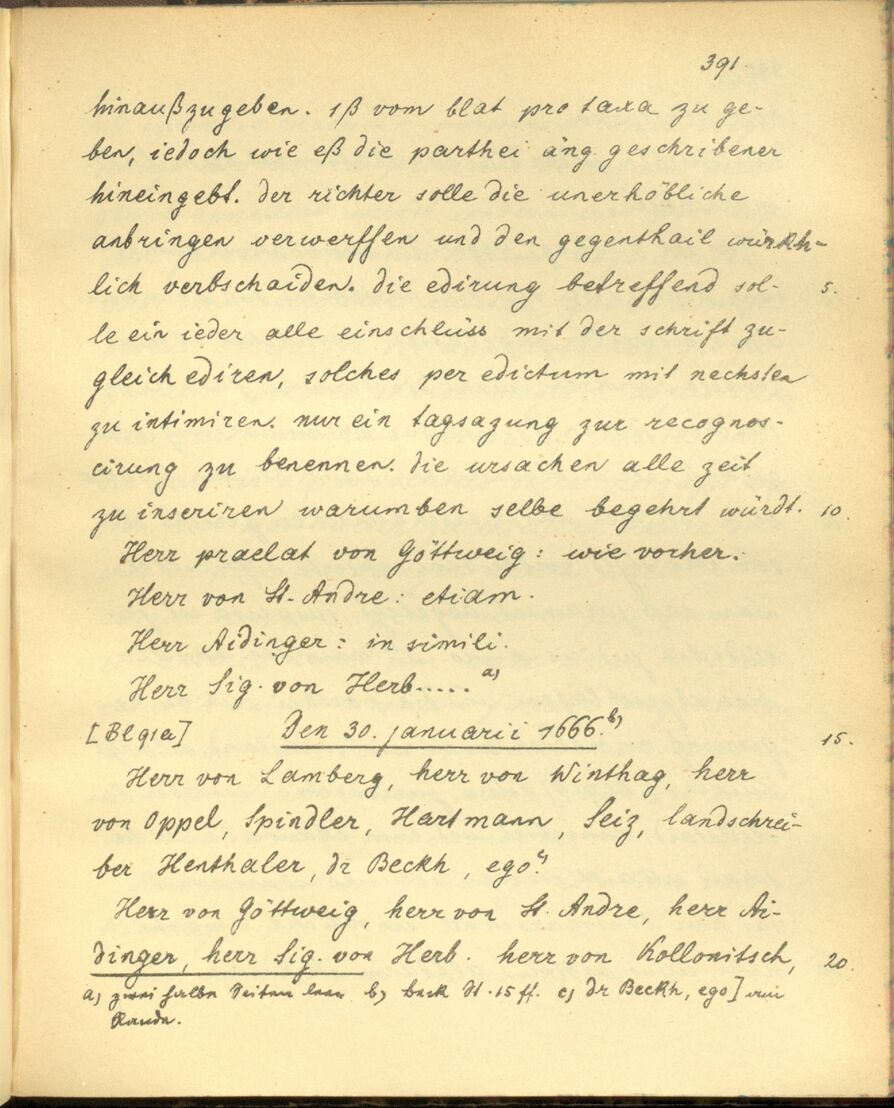 391.
hinaußzugeben. 1ß vom blat pro taxa zu ge-
ben, iedoch wie eß die parthei äng. geschribener
hineingebt. der richter solle die unerhöbliche
anbringen verwerffen und den gegenthail würkh-
lich verbschaiden. die edirung betreffend sol- 5.
le ein ieder alle einschlüss mit der schrift zu-
gleich ediren, solches per edictum mit nechsten
zu intimiren. nur ein tagsazung zur recognos-
cirung zu benennen. die ursachen alle zeit
zu inseriren warumben selbe begehrt würdt. 10.
Herr praelat von Göttweig: wie vorher.
Herr von St. Andre: etiam.
Herr Aidinger: in simili.
Herr Sig. von Herb..... a)
[Bl 91a] Den 30. januarii 1666. b) 15.
Herr von Lamberg, herr von Winthag, herr
von Oppel, Spindler, Hartmann, Seiz, landschrei-
ber Henthaler, dr Beckh, ego. c)
Herr von Göttweig, herr von St. Andre, herr Ai-
dinger, herr Sig. von Herb. herr von Kollonitsch, 20.
a) zwei halbe Seiten leer b) St. 15 ff. c) dr Beckh, ego] am
Rande.